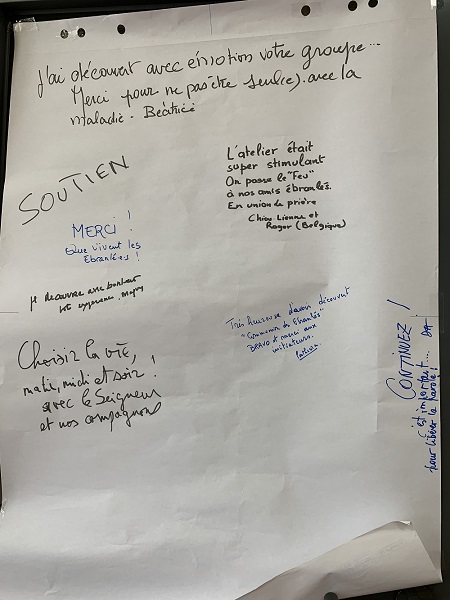 J'ai découvert avec émotion votre groupe...
Merci pour ne pas être seul(e). avec la
maladie. Béatrice
SOUTIEN
L'atelier était
super stimulant
On passe le "Feu"
à nos amis ébranlés.
En union de prière
Lienne et
Roger (Belgique)
MERCI !
Que vivent les
Ebranlé·es !
Je découvre avec bonheur
Très heureuse d'avoir découvert
"Communion des Ebranlés"
BRAVO et merci aux
initiateurs.
Choisir la vie,
matin, midi et soir !
avec le Seigneur
et nos compagnons
CONTINUEZ !
c'est important...
pour libérer la parole !